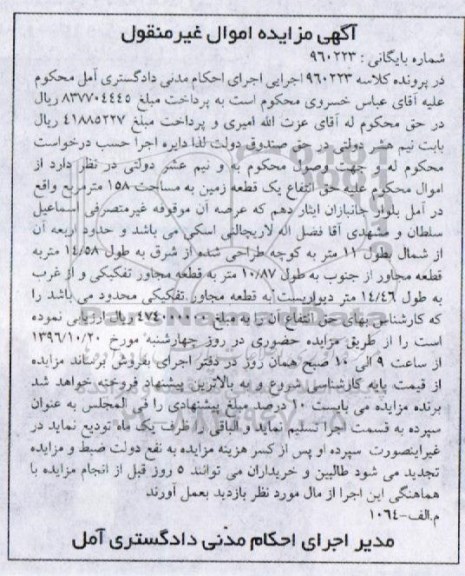 آگهی مزایده اموال غیرمنقول
شماره بایگانی : ۹۶۰۲۲۳
در پرونده کلاسه ۹۶۰۲۲۳ اجرایی اجرای احکام مدنی دادگستری آمل محکوم
علیه آقای عباس خسروی محکوم است به پرداخت مبلغ ۸۳۷۷۰۴۴۴۵ ریال
در حق محکوم له آقای عزت الله امیری و پرداخت مبلغ ۴۱۸۸۵۲۲۷ ریال
بابت نیم هشر دولتی در حق صندوق دولت لذا دایره اجرا حسب درخواست
محکوم له و جهت وصول محکوم به و نیم عشر دولتی در نظر دارد از
اموال محکوم علیه حق انتفاع یک قطعه زمین به مساحت ۱۵۸ مترمربع واقع
در آمل بلوار جانبازان ایثار دهم که عرصه آن موقوفه غیرمتصرفی اسماعیل
سلطان و مشهدی آقا فضل اله لاریجانی اسکی می باشد و حدود اربعه آن
از شمال بطول ۱۱ متر به کوچه طراحی شده از شرق به طول ۱۴/۵۸ متربه
قطعه مجاور از جنوب به طول ۱۰/۸۷ متر به قطعه مجاور تفکیکی و از غرب
به طول ۱۴/۴۶ متر دیواریست به قطعه مجاور تفکیکی محدود می باشد را
که کارشناس بهای حق انتفاع آن را به مبلغ ریال ارزیابی نموده
است را از طریق مزایده حضوری در روز چهارشنبه مورخ ۱۳۹۶/۱۰/۲۰
از ساعت ۹ الی ۱۰ صبح همان روز در دفتر اجرای بفروش برساند مزایده
از قیمت پایه کارشناسی شروع و به بالاترین پیشنهاد فروخته خواهد شد
برنده مزایده می بایست ۱۰ درصد مبلغ پیشنهادی را فی المجلس به عنوان
سپرده به قسمت اجرا تسلیم نماید و الباقی را ظرف یک ماه تودیع نماید در
غیراینصورت سپرده او پس از کسر هزینه مزایده به نفع دولت ضبط و مزایده
تجدید می شود طالبین و خریداران می توانند ۵ روز قبل از انجام مزایده با
هماهنگی این اجرا از مال مورد نظر بازدید بعمل آورند
م.الف-۱۰۶۴
مدیر اجرای احکام مدنی دادگستری آمل